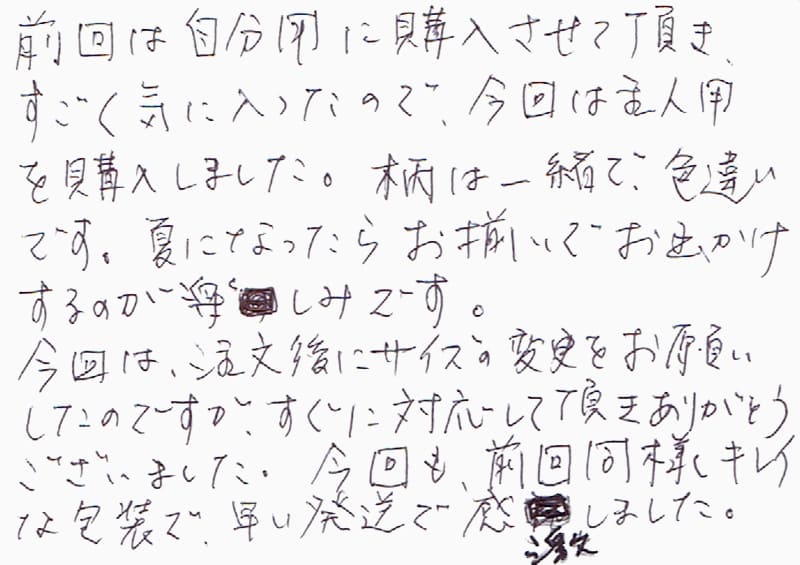 前回は自分用に購入させて頂き、
すごく気に入ったので、今回は主人用
を購入しました。柄は一緒で、色違い
です。夏になったらお揃いでお出かけ
するのが楽しみです。
今回は、注文後にサイズの変更をお願い
したのですが、すぐに対応して頂きありがとう
ございました。今回も、前回同様、キレイ
な包装で、早い発送で感激しました。